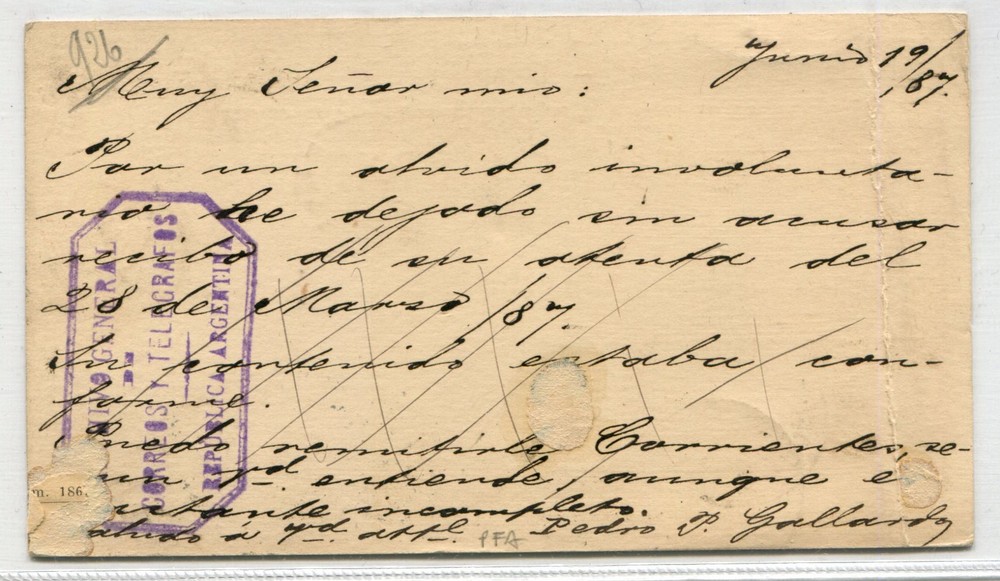 926
Junio 19/87.
Muy Señor mio:
Por un olvido involunta-
rio he dejado sin acusar
recibo de su atenta del
28 de Marzo /87.
Su contenido estaba con-
forme.
Puedo remitirle Corrientes, se-
un Vd. entiende, aunque e
incompleto.
á Vd. attte. Pedro P. Gallardo
PFA
m. 186
IVO GENERAL
DE
CORREOS Y TELEGRAFOS
REPUBLICA ARGENTINA